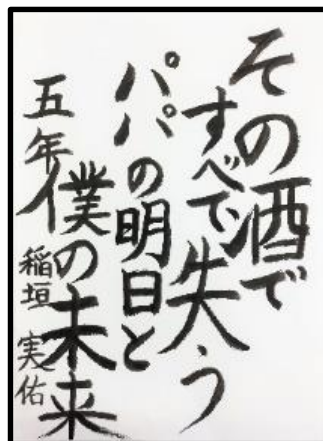 その酒で
すべて失う
パパの明日と
僕の未来
五年 稲垣 実佑